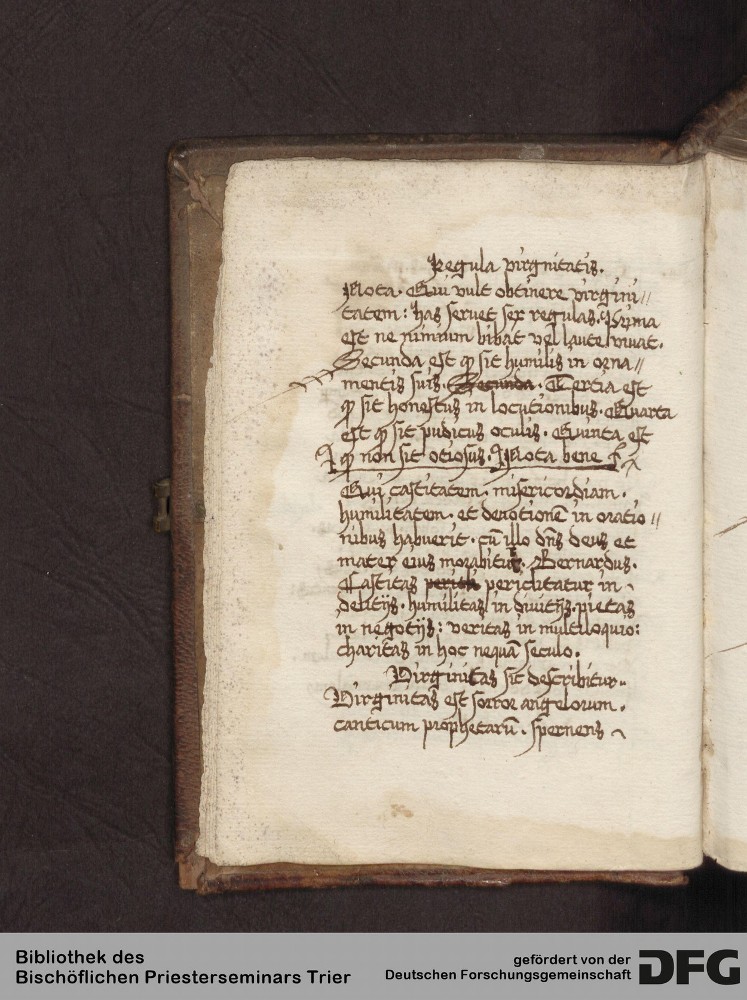 Regula virgnitatis.
Nota. Qui vult obtinere virgini//
tatem: has servet sex regulas. Prima
est ne nimium bibat vel laute vivat.
Secunda est ꝙ sit humilis in orna//
mentis suis. Secunda. Tertia est
ꝙ sit honestus in locutionibus. Quarta
est ꝙ sit pudicus oculis. Quinta est
ꝙ non sit otiosus. Nota bene
Qui castitatem. misericordiam.
humilitatem. et devotionē in oratio//
nibus habuerit. cū illo dn̄s deus et
mater eius morabitur. Bernardus.
Castitas periclitatur in
delitijs. humilitas in divitijs. pietas
in negotijs: veritas in multiloquio:
charitas in hoc nequā seculo.
Virginitas sic describitur.
Virginitas est soror angelorum.
canticum prophetarū. spernens
Bibliothek des
Bischöflichen Priesterseminars Trier
gefördert von der
Deutschen Forschungsgemeinschaft
DFG